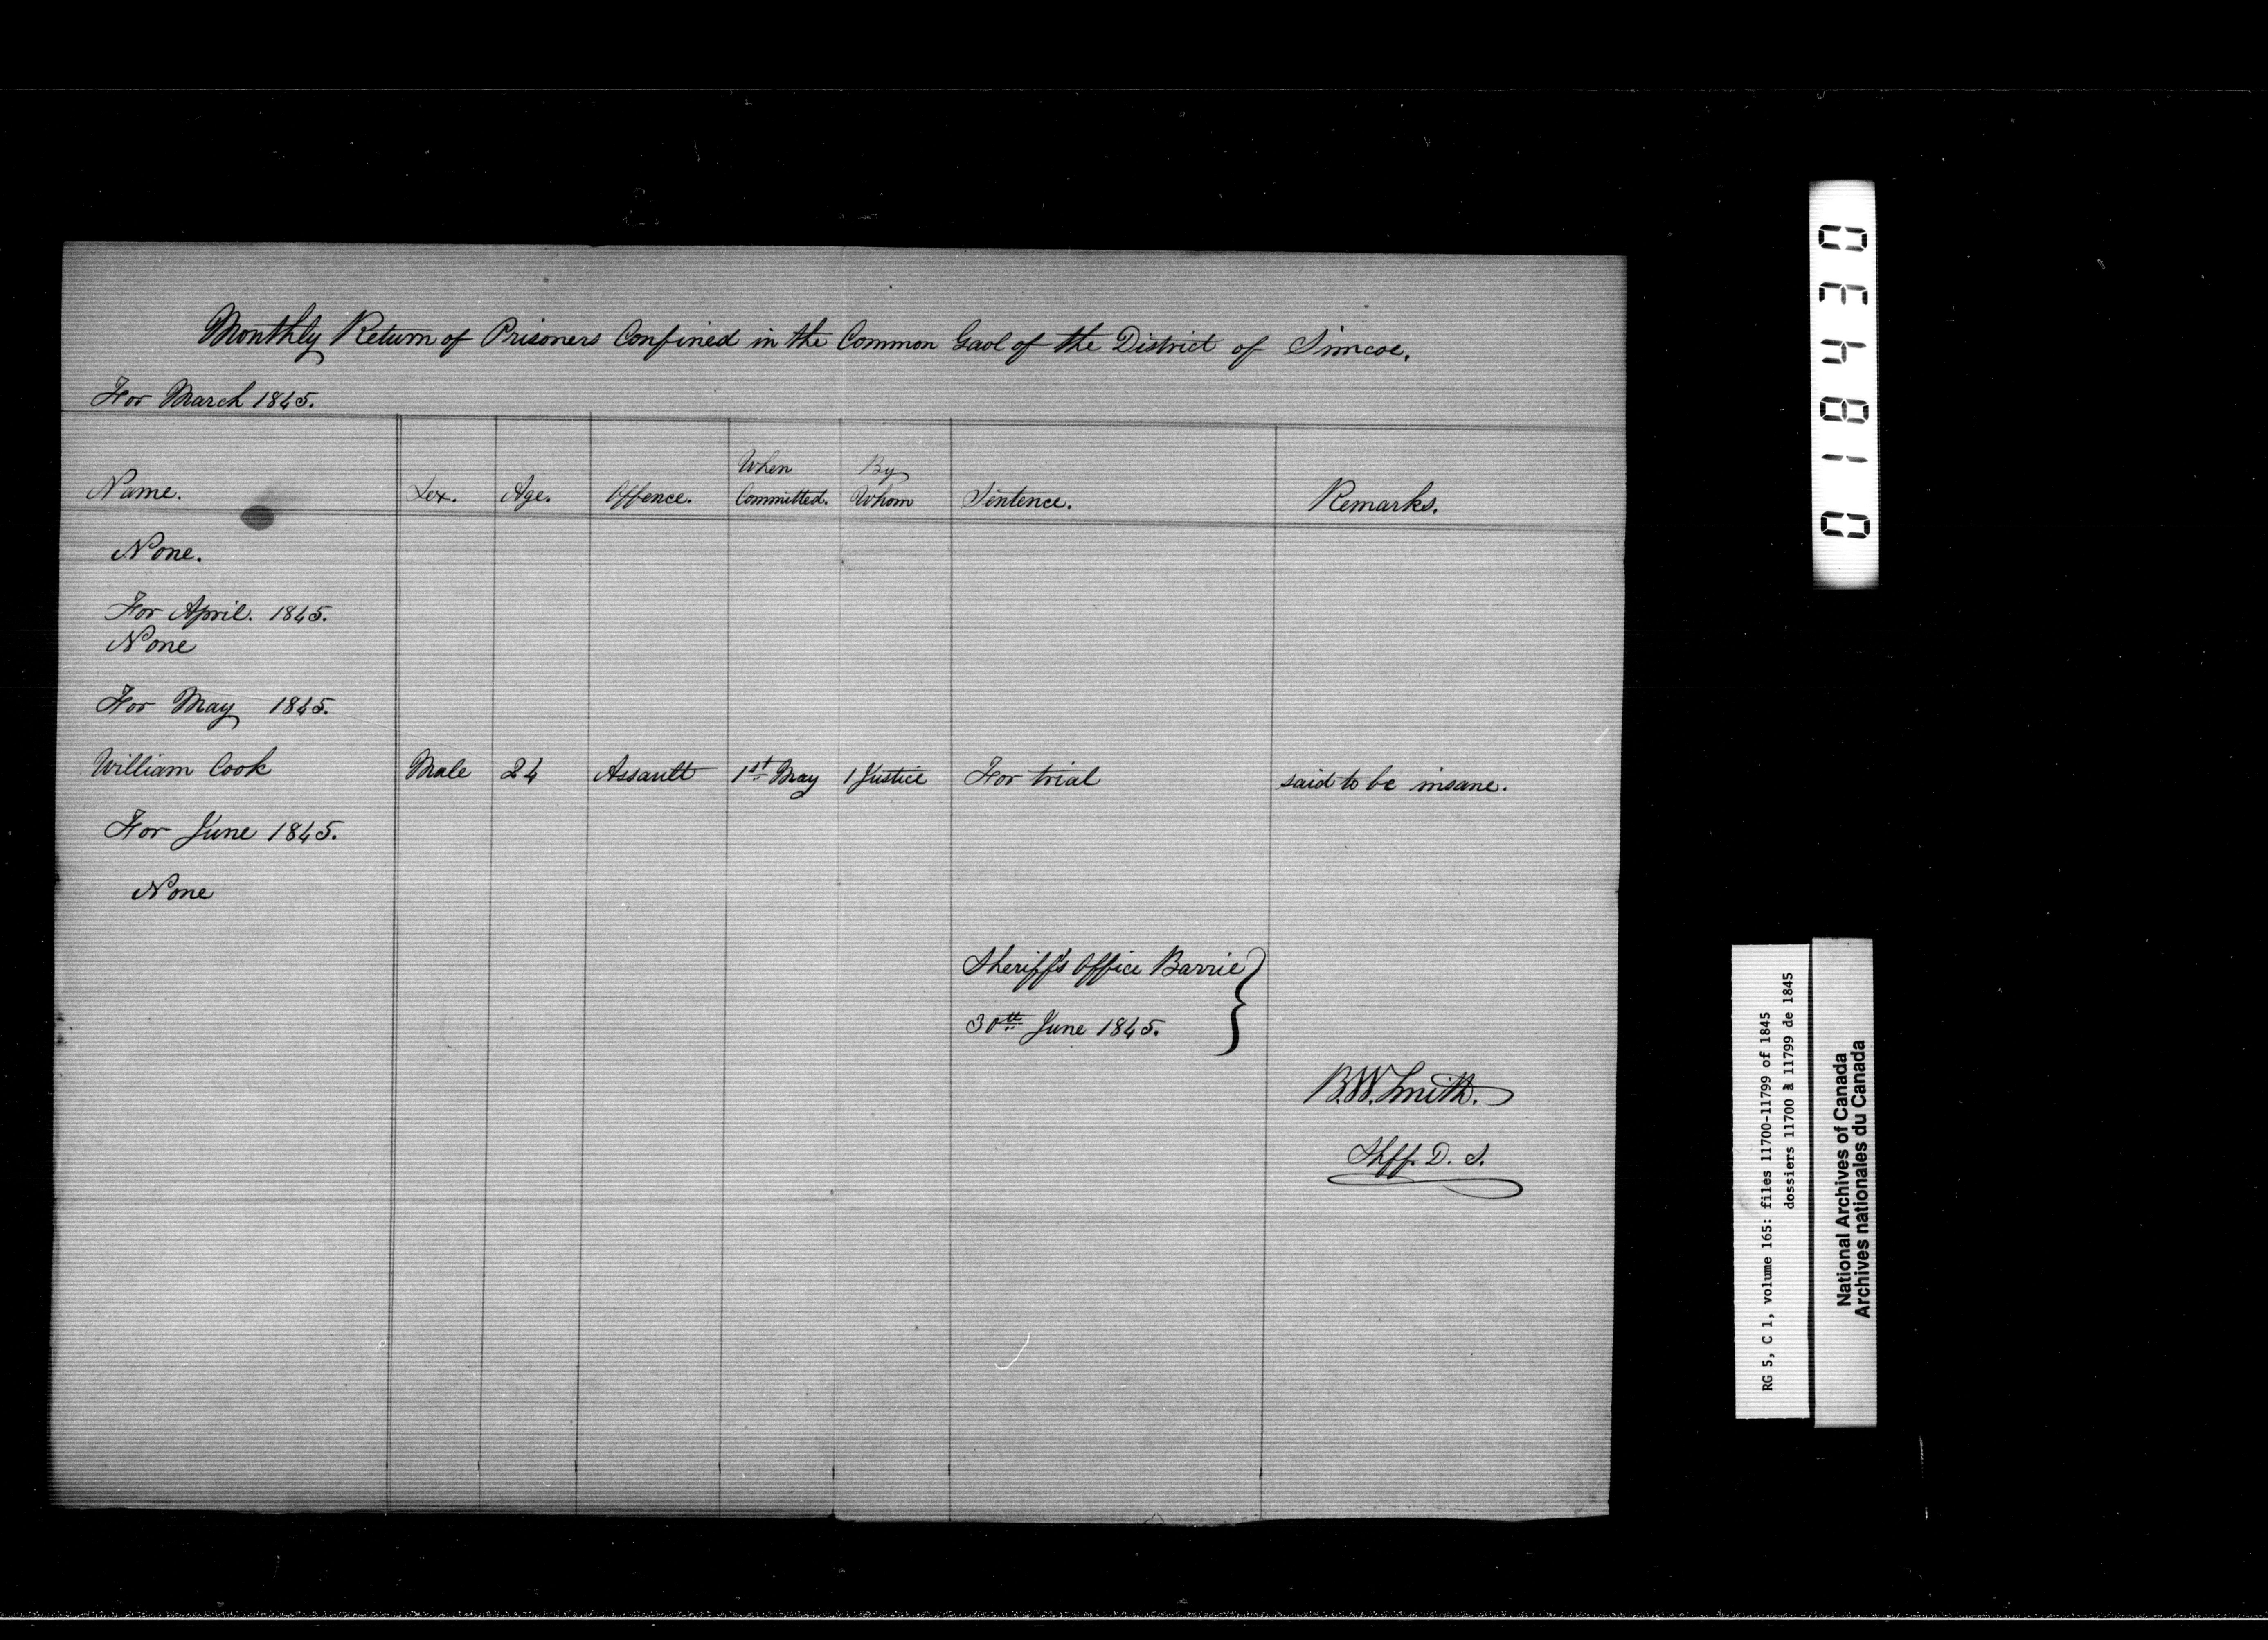 Monthly Return of Prisoners Confined in the Common Gaol of the District of Simcoe.
For March 1845.
Name. Sex. Age. Offence. When Committed. By Whom Sentence. Remarks.
None.
For April. 1845.
None
For May 1845.
William Cook Male 24 Assault 1st May 1 Justice For trial said to be insane.
For June 1845.
None
Sheriff's Office Barrie
30th June 1845.
B.W. Smith.
Shff. D. S.
018430
RG 5, C 1, volume 165: files 11700-11799 of 1845
dossiers 11700 à 11799 de 1845
National Archives of Canada
Archives nationales du Canada